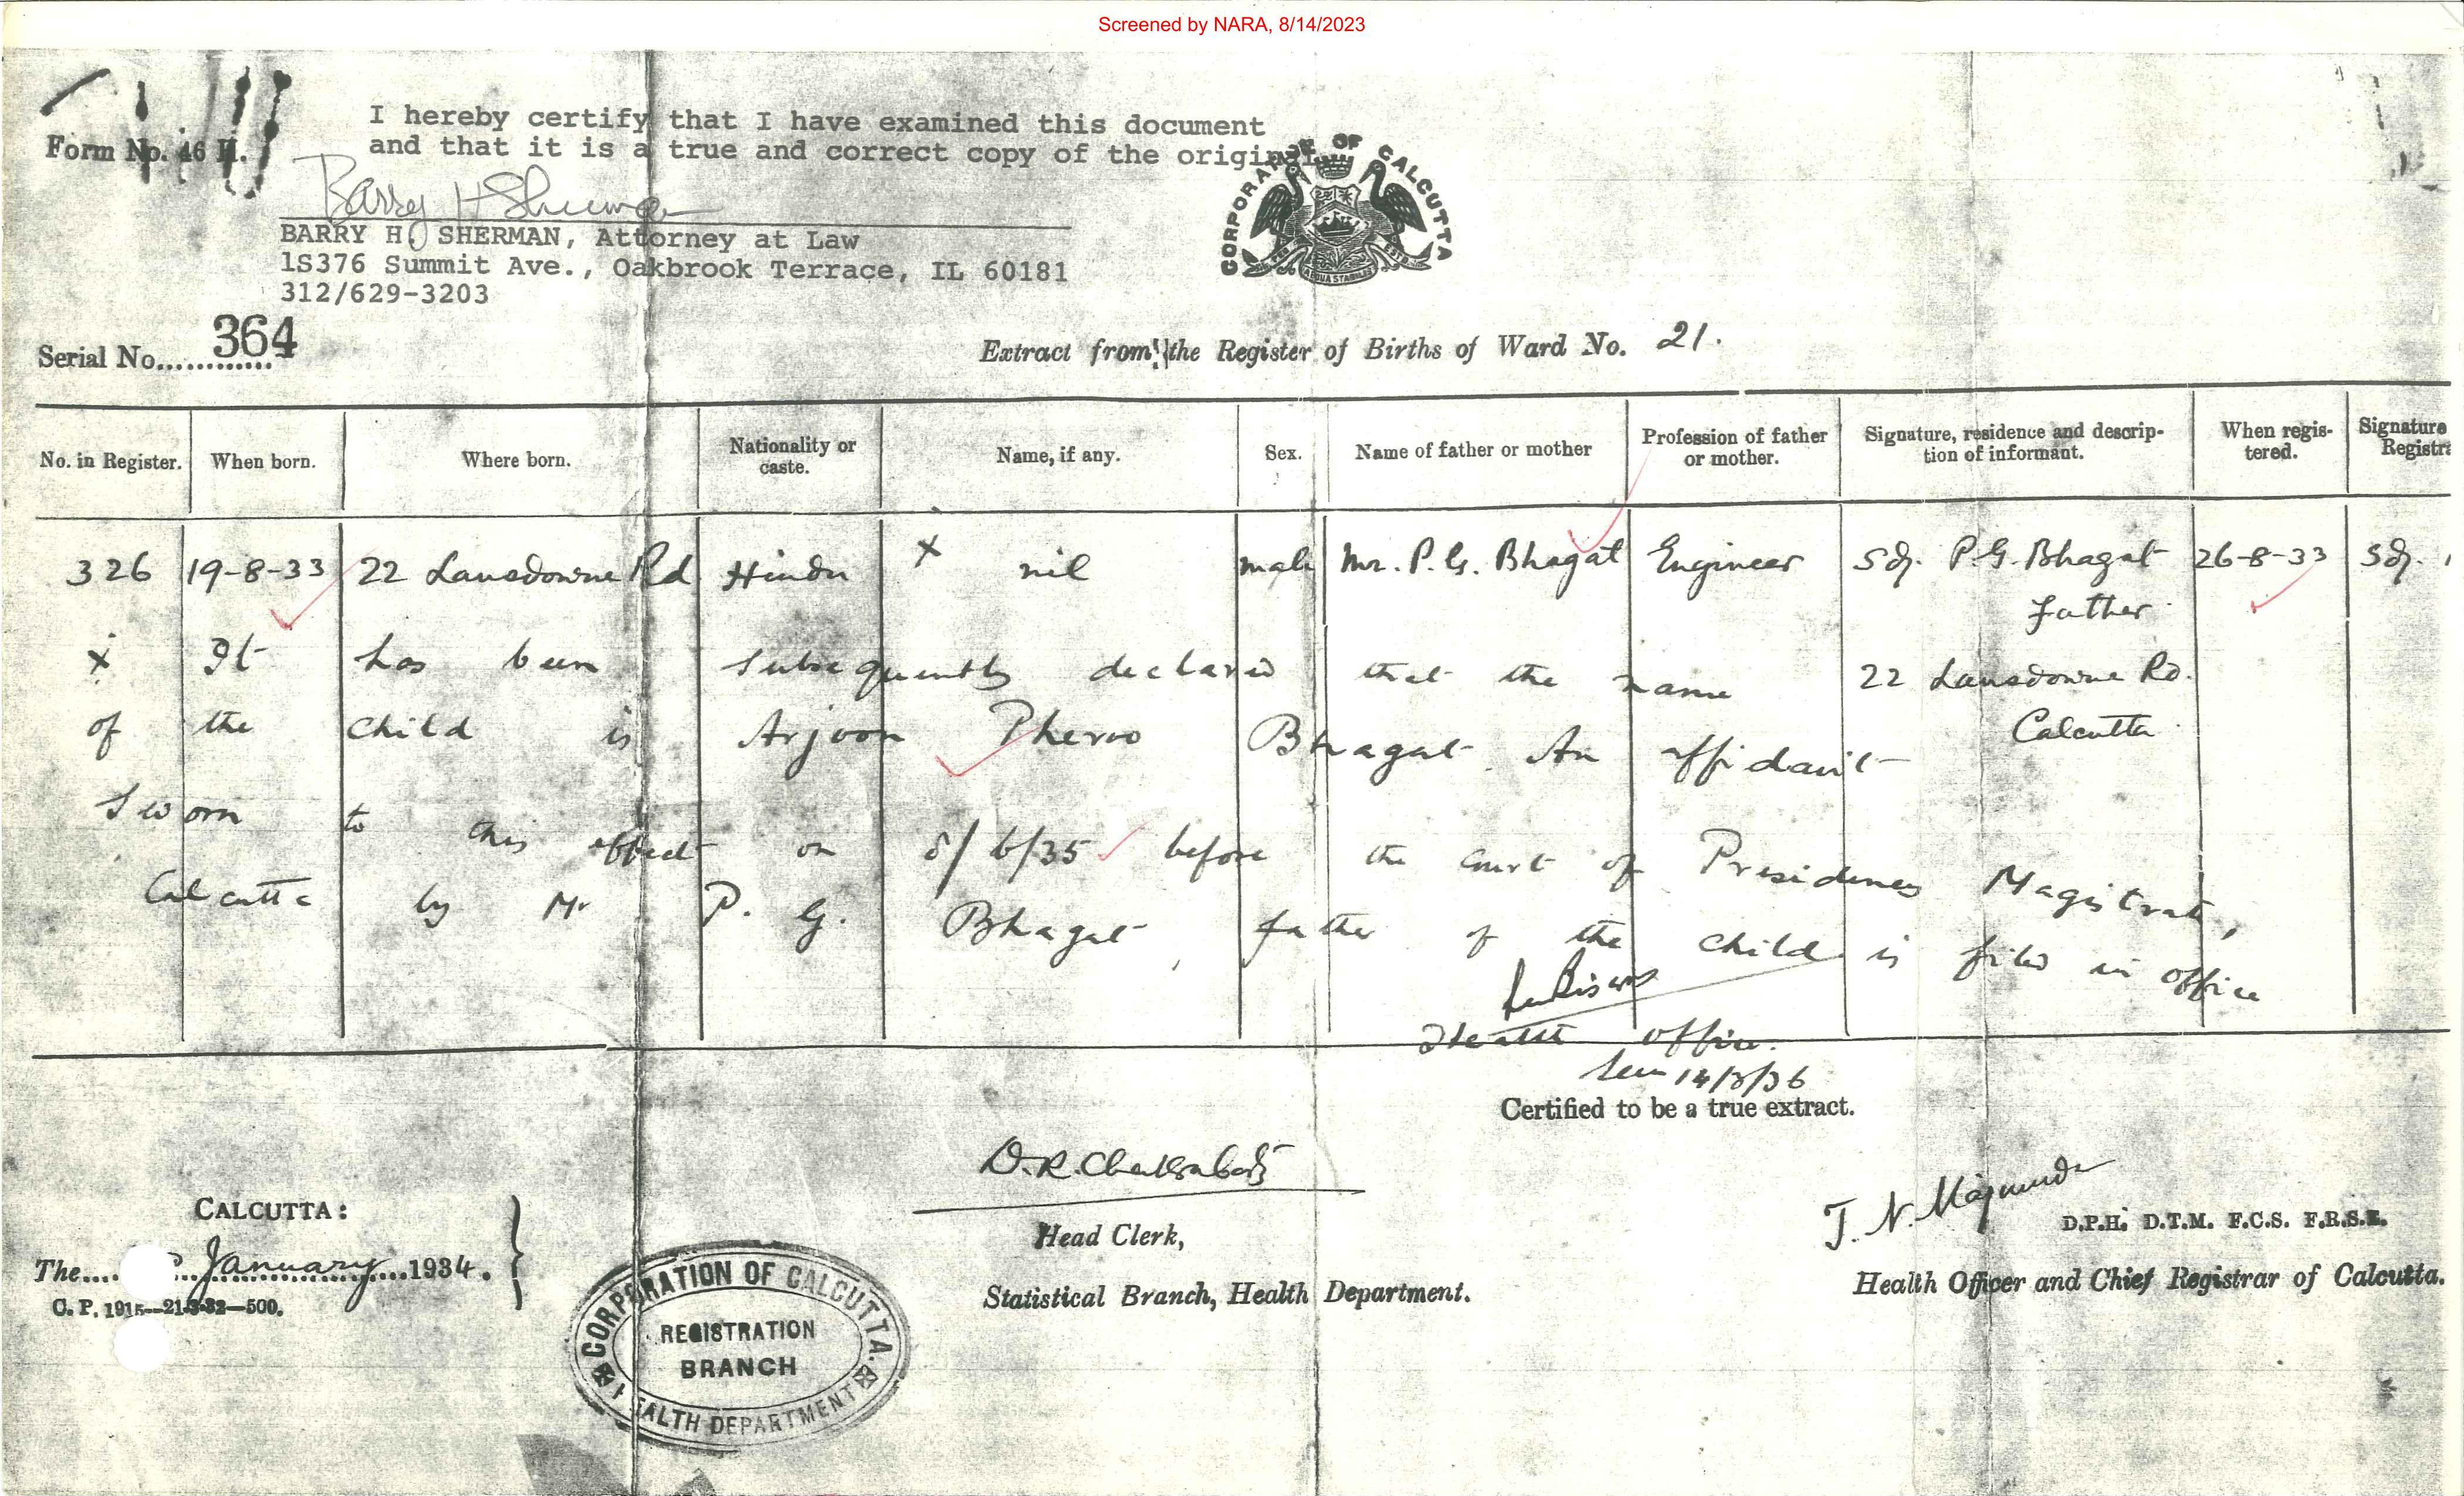 Screened by NARA, 8/14/2023
I hereby certify that I have examined this document
and that it is a true and correct copy of the original.
Form No. 46 H.
Barry H Sherman
BARRY H. SHERMAN, Attorney at Law
1S376 Summit Ave., Oakbrook Terrace, IL 60181
312/629-3203
CORPORATION OF CALCUTTA
Serial No. 364
Extract from the Register of Births of Ward No. 21.
No. in Register. When born. Where born. Nationality or caste. Name, if any. Sex. Name of father or mother Profession of father or mother. Signature, residence and description of informant. When registered. Signature Registra
326 19-8-33 22 Lansdowne Rd Hindu x nil male Mr. P. G. Bhagat Engineer Sd/. P. G. Bhagat 26-8-33 Sd/.
father
x It has been subsequently declared that the name 22 Lansdowne Rd.
of the child is Arjoon Pheroo Bhagat. An affidavit Calcutta
sworn to this effect on 8/6/35 before the court of Presidency Magistrate,
Calcutta by Mr P. G. Bhagat, father of the child is filed in office
Health Officer.
14/3/36
Certified to be a true extract.
D. R. Chakrabarti
Head Clerk,
Statistical Branch, Health Department.
T. N. Majumdar
D.P.H. D.T.M. F.C.S. F.R.S.E.
Health Officer and Chief Registrar of Calcutta.
CALCUTTA:
The January 1934.
C. P. 1915—21-3-32—500.
CORPORATION OF CALCUTTA.
REGISTRATION
BRANCH
HEALTH DEPARTMENT